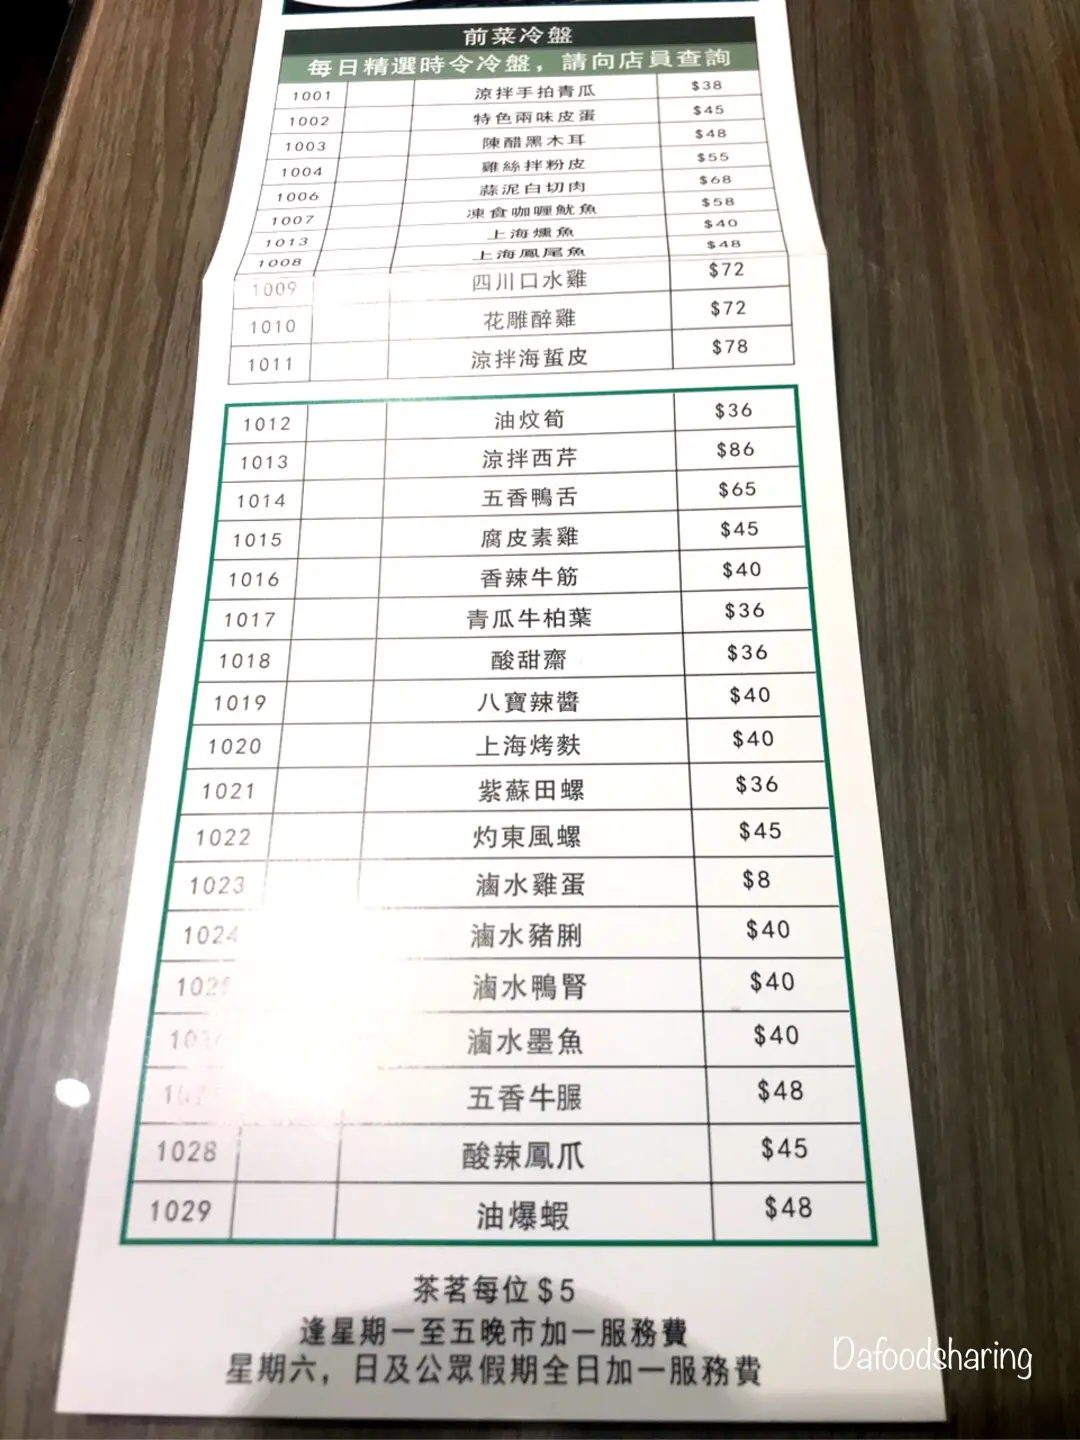 前菜冷盤
每日精選時令冷盤，請向店員查詢
1001 涼拌手拍青瓜 $38
1002 特色兩味皮蛋 $45
1003 陳醋黑木耳 $48
1004 雞絲拌粉皮 $55
1006 蒜泥白切肉 $68
1007 凍食咖喱魷魚 $58
1013 上海燻魚 $40
1008 上海鳳尾魚 $48
1009 四川口水雞 $72
1010 花雕醉雞 $72
1011 涼拌海蜇皮 $78
1012 油炆筍 $36
1013 涼拌西芹 $86
1014 五香鴨舌 $65
1015 腐皮素雞 $45
1016 香辣牛筋 $40
1017 青瓜牛柏葉 $36
1018 酸甜齋 $36
1019 八寶辣醬 $40
1020 上海烤麩 $40
1021 紫蘇田螺 $36
1022 灼東風螺 $45
1023 滷水雞蛋 $8
1024 滷水豬脷 $40
1025 滷水鴨腎 $40
滷水墨魚 $40
五香牛𦟌 $48
1028 酸辣鳳爪 $45
1029 油爆蝦 $48
茶茗每位$5
逢星期一至五晚市加一服務費
星期六，日及公眾假期全日加一服務費
Dafoodsharing